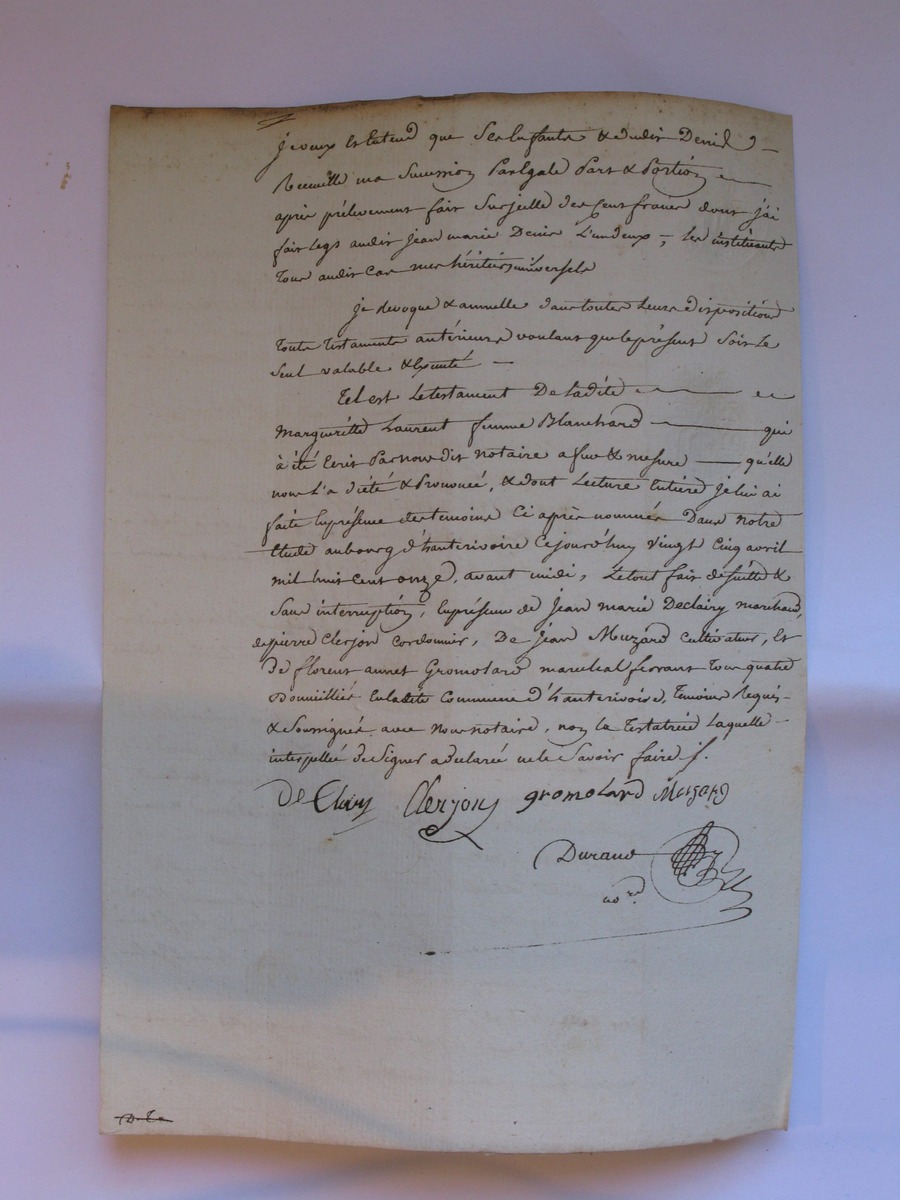 je veux & entend que ses enfants & dudit Denis
Recueille ma succession Par Egale Part & Portion
après prélevement fait sur icelle des cent francs dont j'ai
fait legs audit jean marie Denis L'un deux, les instituants
Tous audit cas mes héritiers universels
je Revoque & annulle dans toutes Leurs dispositions
Touts Testaments antérieurs voulant que le présent soit Le
seul valable & Exécuté
Tel est Le testament De ladite
Margueritte Laurent femme Blanchard qui
à été Ecrit Par nous dit notaire a fur & mesure qu'elle
nous L'a dicté & Prononcé, & dont Lecture Entière je lui ai
faite En présence des temoins Ci après nommés Dans Notre
Etude au bourg d'hauterivoire Cejourd'huy vingt cinq avril
mil huit cent onze, avant midi, Letout fait desuitte &
Sans interruption, En présence de jean marie Declairy marchand,
de pierre Clerjon cordonnier, De jean Muzard cultivateur, Et
de florent annet Gromolard marechal ferrant Tous quatre
Domicilliés En ladite Commune d'hauterivoire, Temoins Requis
& soussignés avec Nous notaire, non la Testatrice Laquelle
interpellée de signer a declaré ne le Savoir faire /.
De Clairy Clerjon gromolard Muzard
Durand
no.re